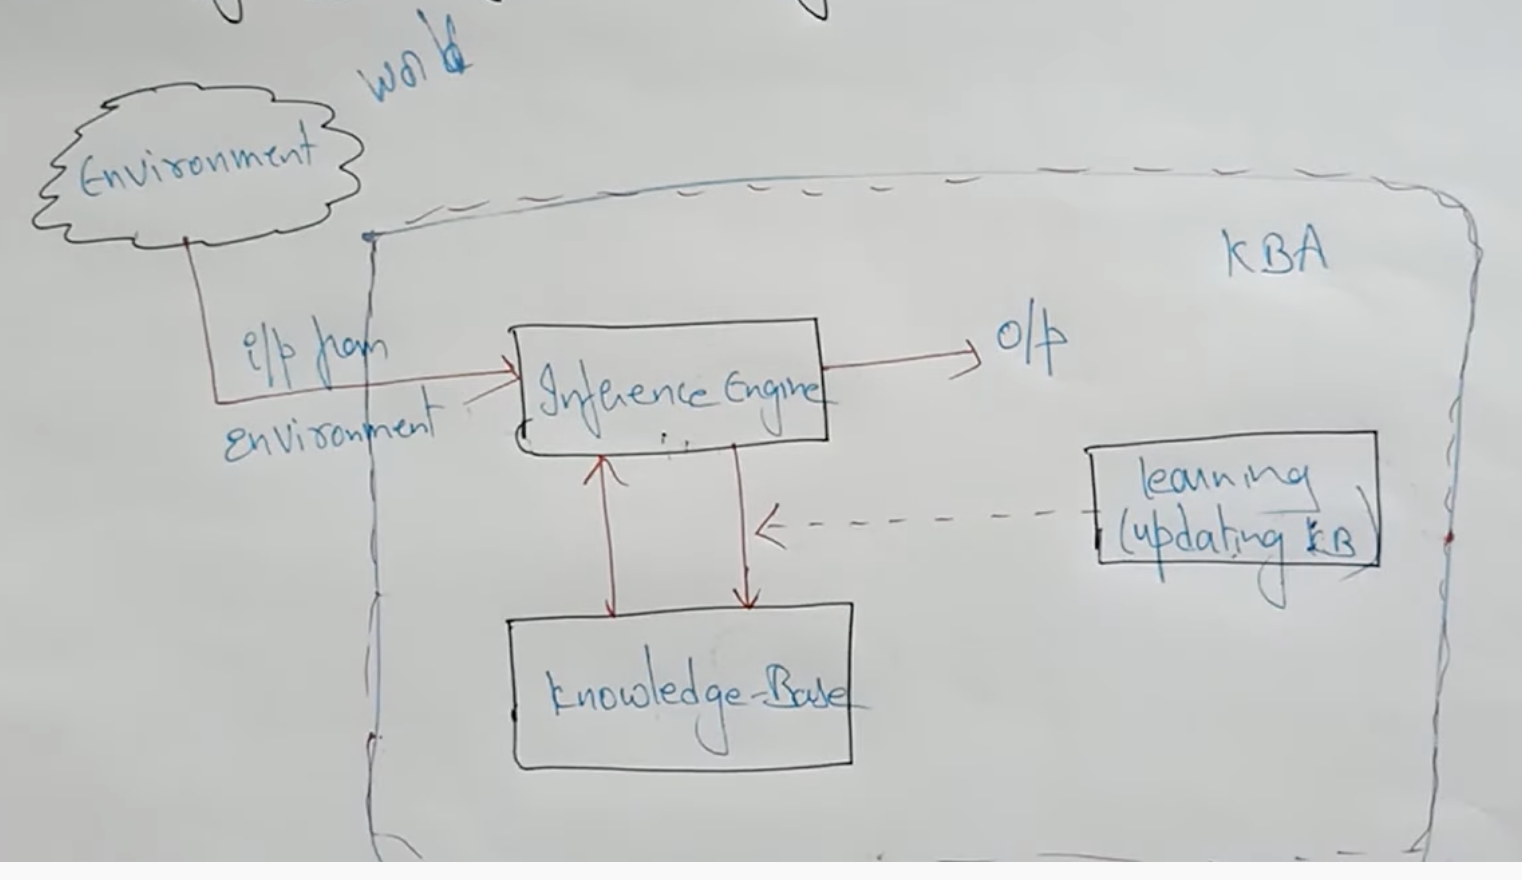 world
Environment
KBA
i/p from
environment
Inference Engine
o/p
learning
(updating KB)
Knowledge-Base